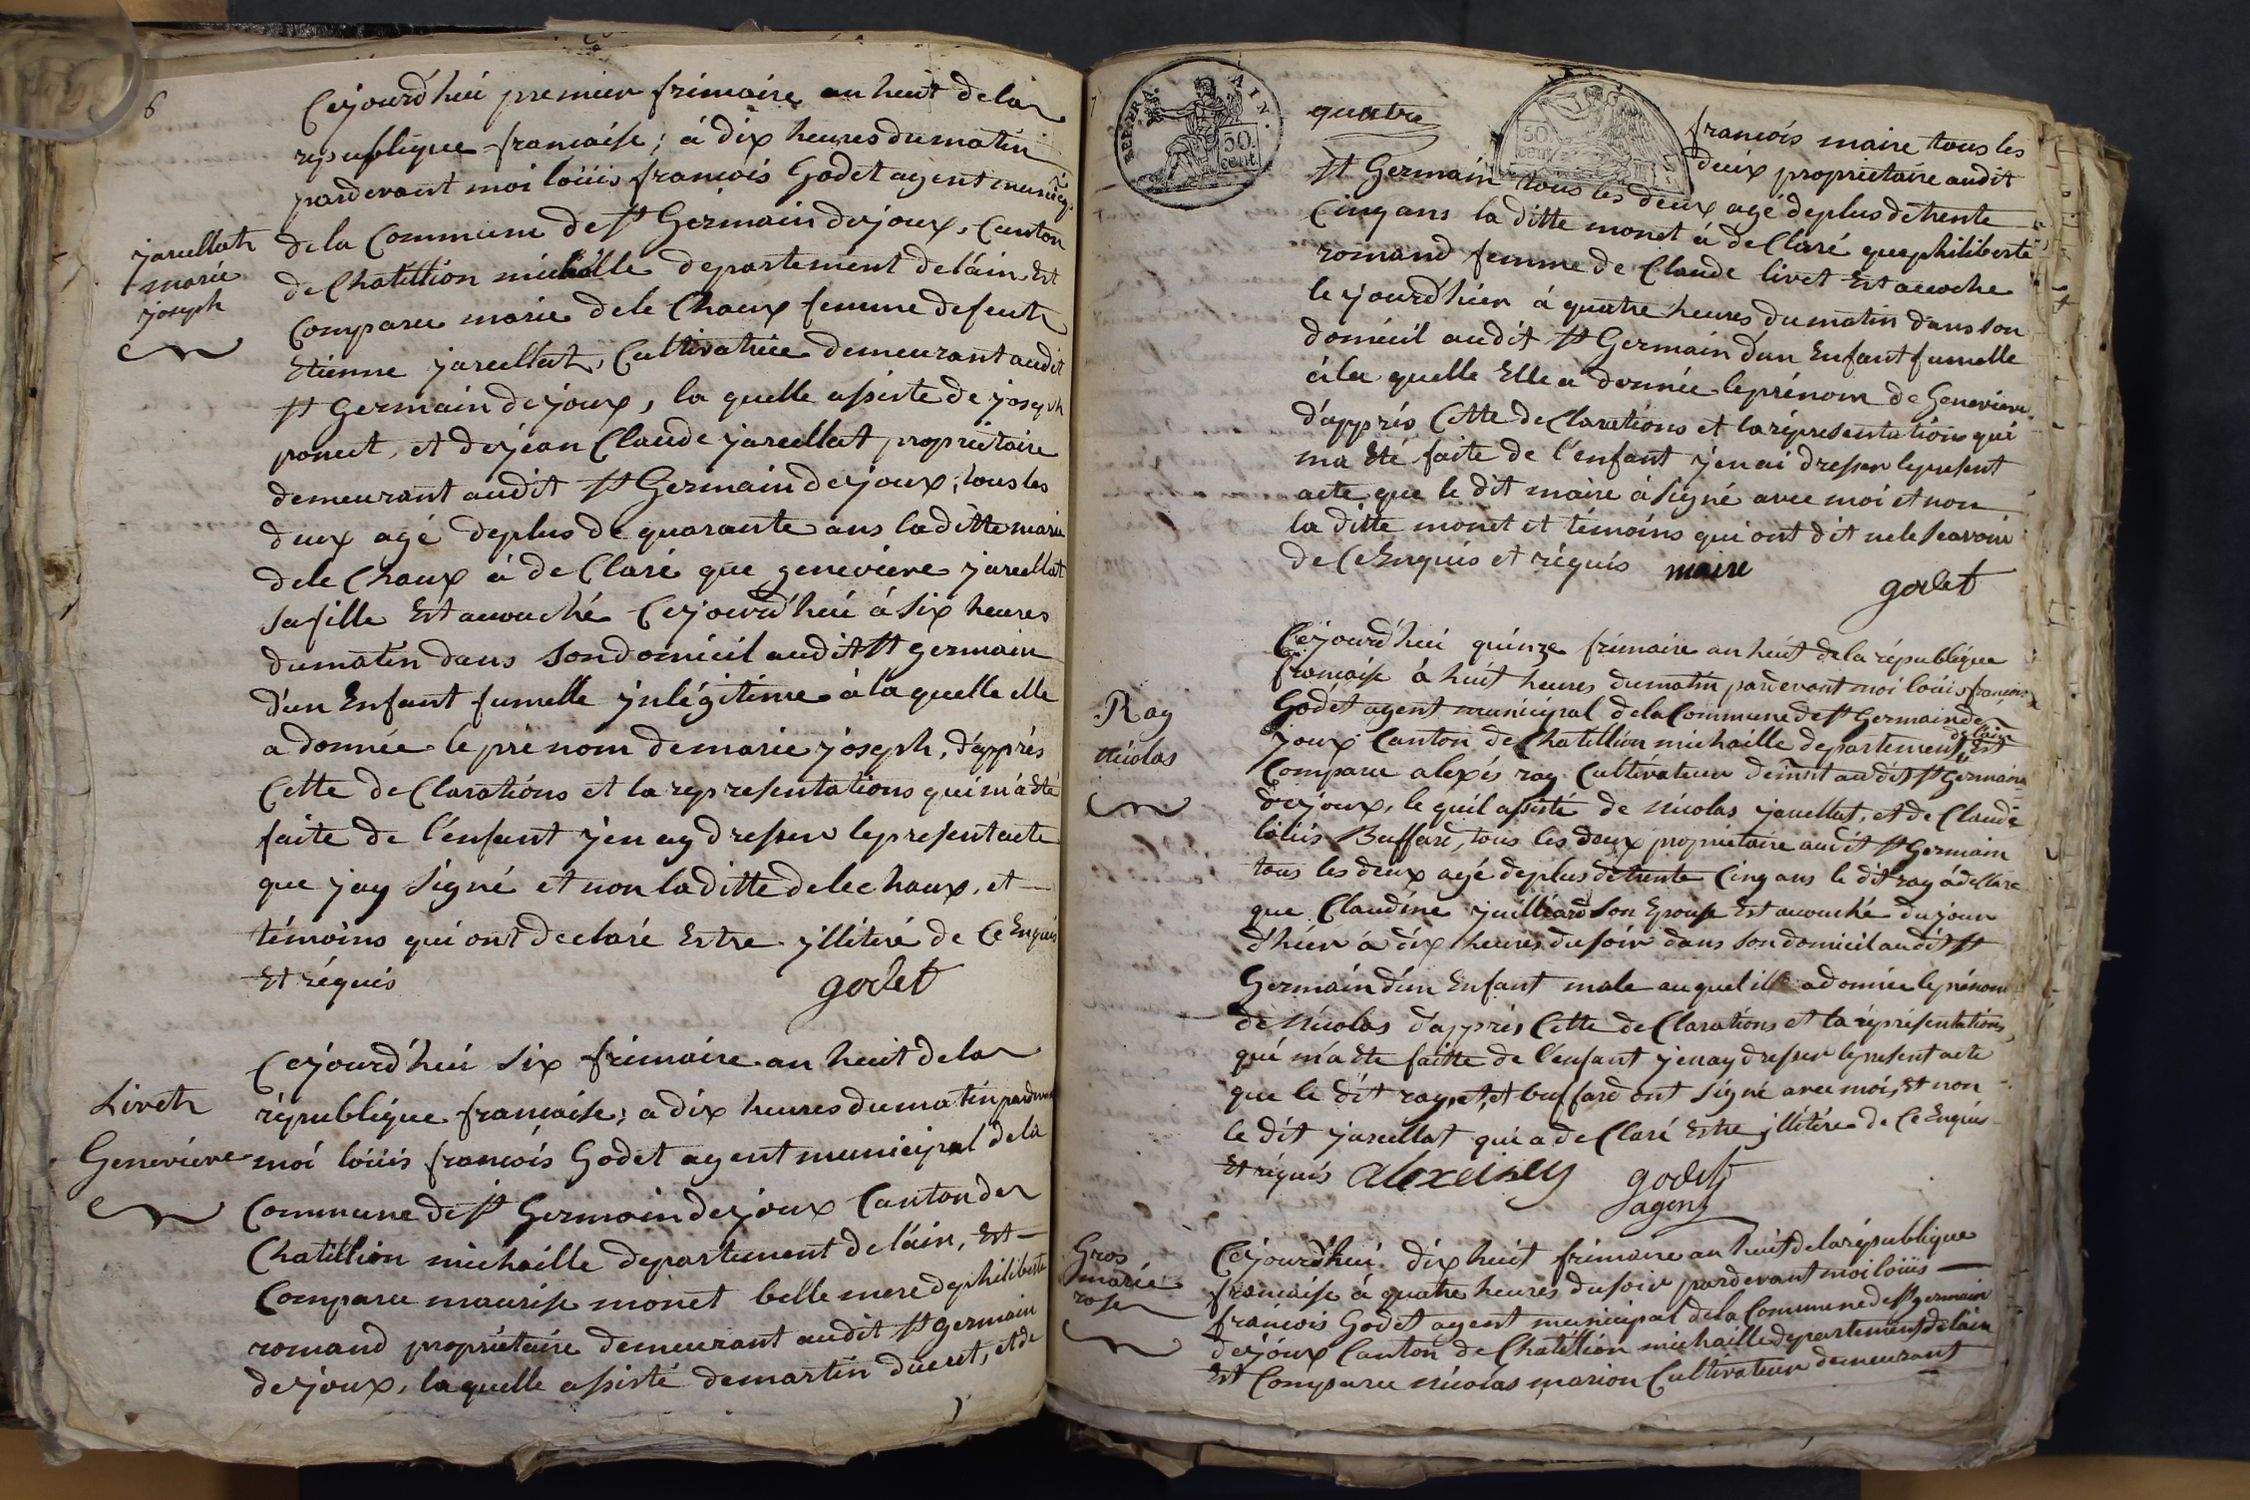 6
Cejourd'hui premier frimaire an huit de la
republique francaise; à dix heures du matin
pardevant moi loüis francois Godet agent municip.
de la Commune de St Germain dejoux, Canton
de Chatillion michaille departement de l'ain Est
Comparu marie dele Chaux femme defeut
Etienne jarcellat, Cultivatrice demeurant audit
St Germain dejoux, la quelle assisté de joseph
poncet, et dejean Claude jarcellat, propriétaire
demeurant audit St Germain dejoux, tous les
deux agé deplus de quarante ans la ditte marie
dele Chaux à de Claré que genevieve jarcellat
sa fille Est acouché Cejourd'hui à six heures
dumatin dans son domicil audit St germain
d'un Enfant fumelle jnlégitime à la quelle elle
a donnée le prénom demarie joseph, d'apprés
Cette de Clarations et la representations qui m'a Eté
faite de l'enfant j'en ay dresser lepresent acte
que j'ay signé et non la ditte delechaux, et
témoins qui ont declaré Estre jllitéré de Ce Enquis
Et réquis
godet
jarcellat
marie
joseph
Cejourd'hui six frimaire an huit de la
république francaise; a dix heures du matin pardevant
moi loüis francois Godet agent municipal de la
Commune de St Germain dejoux Canton de
Chatillion michaille departement de l'ain, Est
Comparu maurise monet belle mere de philiberte
romand propriétaire demeurant audit St Germain
dejoux, laquelle assisté demartin ducret, et de
Livet
Genevieve
REP. FRA. AIN.
50.
cent.
quatre
50.
cent
francois maire tous les
deux propriétaire audit
St Germain tous les deux agé deplus de trente
Cinq ans la ditte monet à de Claré que philiberte
romand femme de Claude livet Est acoche
le jourd'hier à quatre heures du matin dans son
domicil audit St Germain d'un Enfant fumelle
à la quelle Elle a donnée le prénom de Genevieve
d'apprés Cette de Clarations et la répresentations qui
ma Eté faite de l'enfant j'en ai dresser lepresent
acte que le dit maire à signé avec moi et non
la ditte monet et témoins qui ont dit ne le scavoir
de Ce Enquis et réquis
maire
godet
Cejourd'hui quinze frimaire an huit de la république
francaise à huit heures du matin pardevant moi loüis francois
Godet agent municipal de la Commune de St Germain de
joux Canton de Chatillion michaille departement de l'ain Est
Comparu alexis ray Cultivateur demt audit St Germain
dejoux, le quil assisté de nicolas jarcellat, et de Claude
loüis Buffard, tous les deux propriétaire audit St Germain
tous les deux agé deplus de trente Cinq ans le dit ray à declaré
que Claudine juilliard son Epouse Est acouché du jour
d'hier à dix heures du soir dans son domicil audit St
Germain d'un Enfant male auquel il a donnée le prénom
de nicolas d'apprés Cette de Clarations et la répresentations
qui m'a Eté faitte de l'enfant j'en ay dresser lepresent acte
que le dit ray, et buffard ont signé avec moi, Et non
le dit jarcellat qui a de Claré Estre jllitéré de Ce Enquis
Et réquis
godet
agent
Ray
nicolas
Cejourd'hui dix huit frimaire an huit de la république
francaise à quatre heures du soir pardevant moi loüis
francois Godet agent municipal de la Commune de St germain
dejoux Canton de Chatillion michaille departement de l'ain
Est Comparu nicolas marion Cultivateur demeurant
Gros
marie
rose